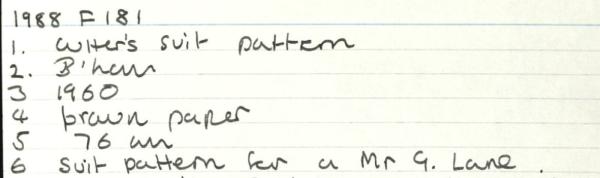 1988 F 181
1. cutter's suit pattern
2. B'ham
3 1960
4 brown paper
5 76 cm
6 suit pattern for a Mr G. Lane .